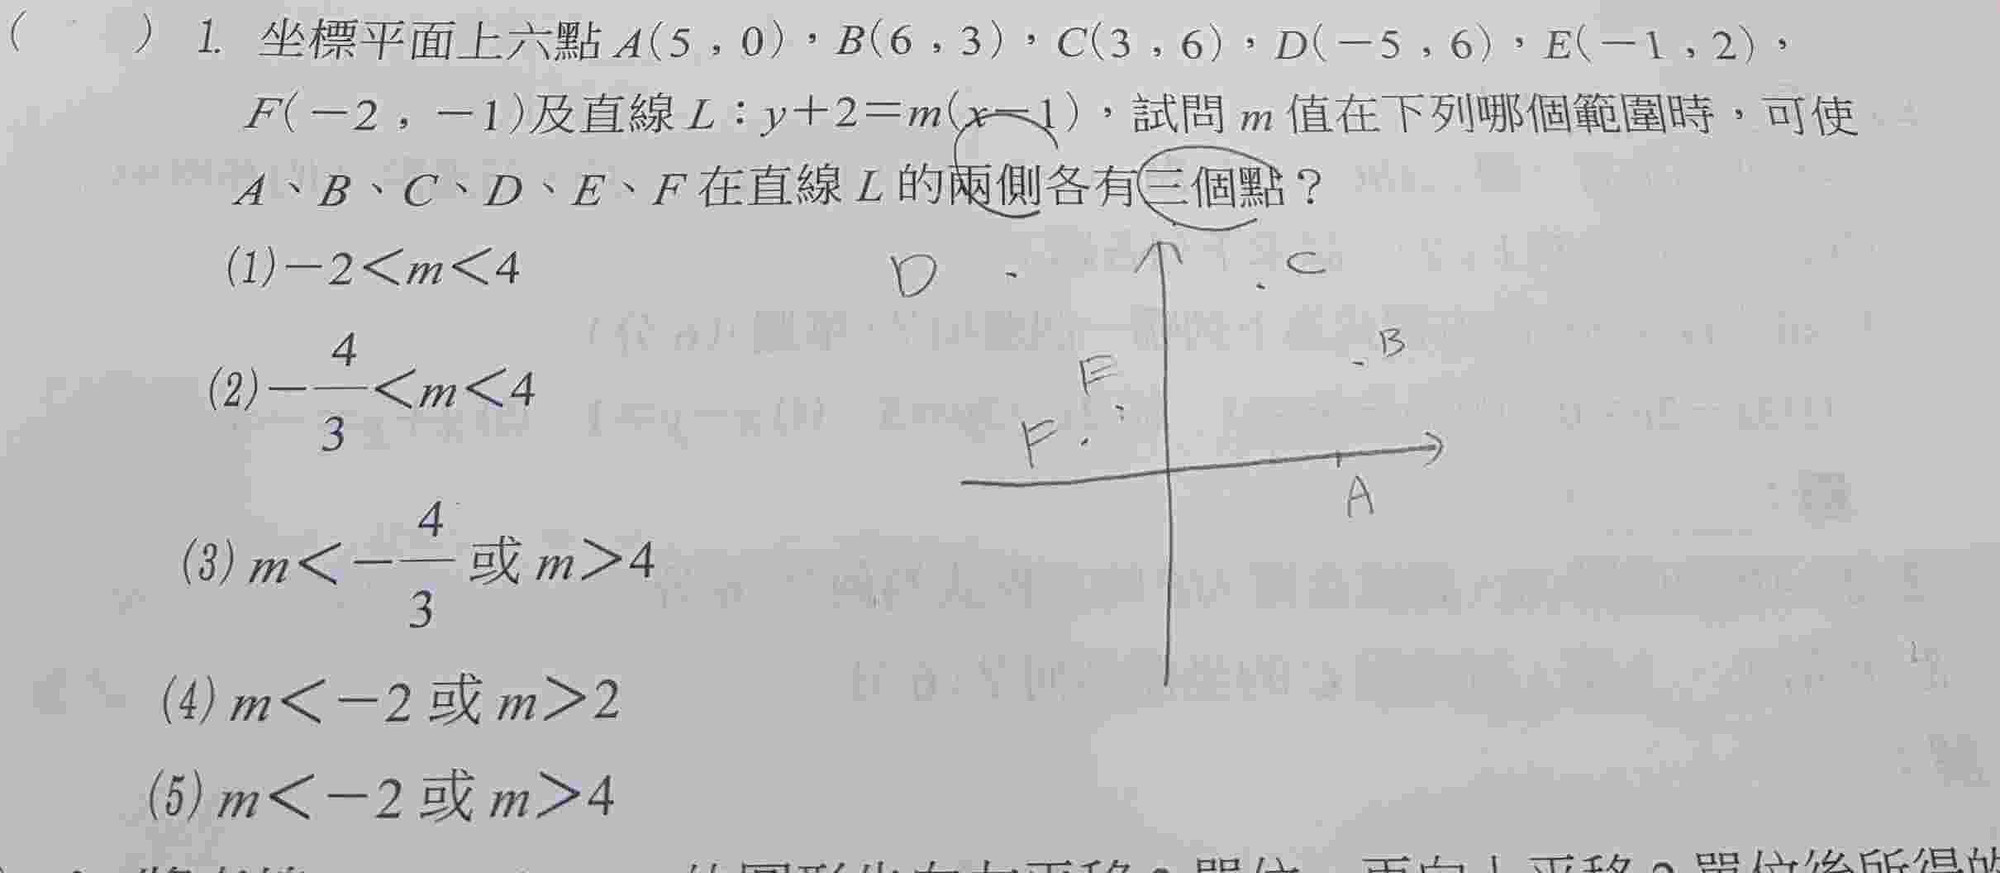 (    ) 1. 坐標平面上六點A(5,0),B(6,3),C(3,6),D(−5,6),E(−1,2),
F(−2,−1)及直線L:y+2=m(x−1),試問m值在下列哪個範圍時,可使
A、B、C、D、E、F在直線L的兩側各有三個點?
(1)−2<m<4
(2)−4/3<m<4
(3)m<−4/3 或m>4
(4)m<−2或m>2
(5)m<−2或m>4
D
C
B
E
F
A